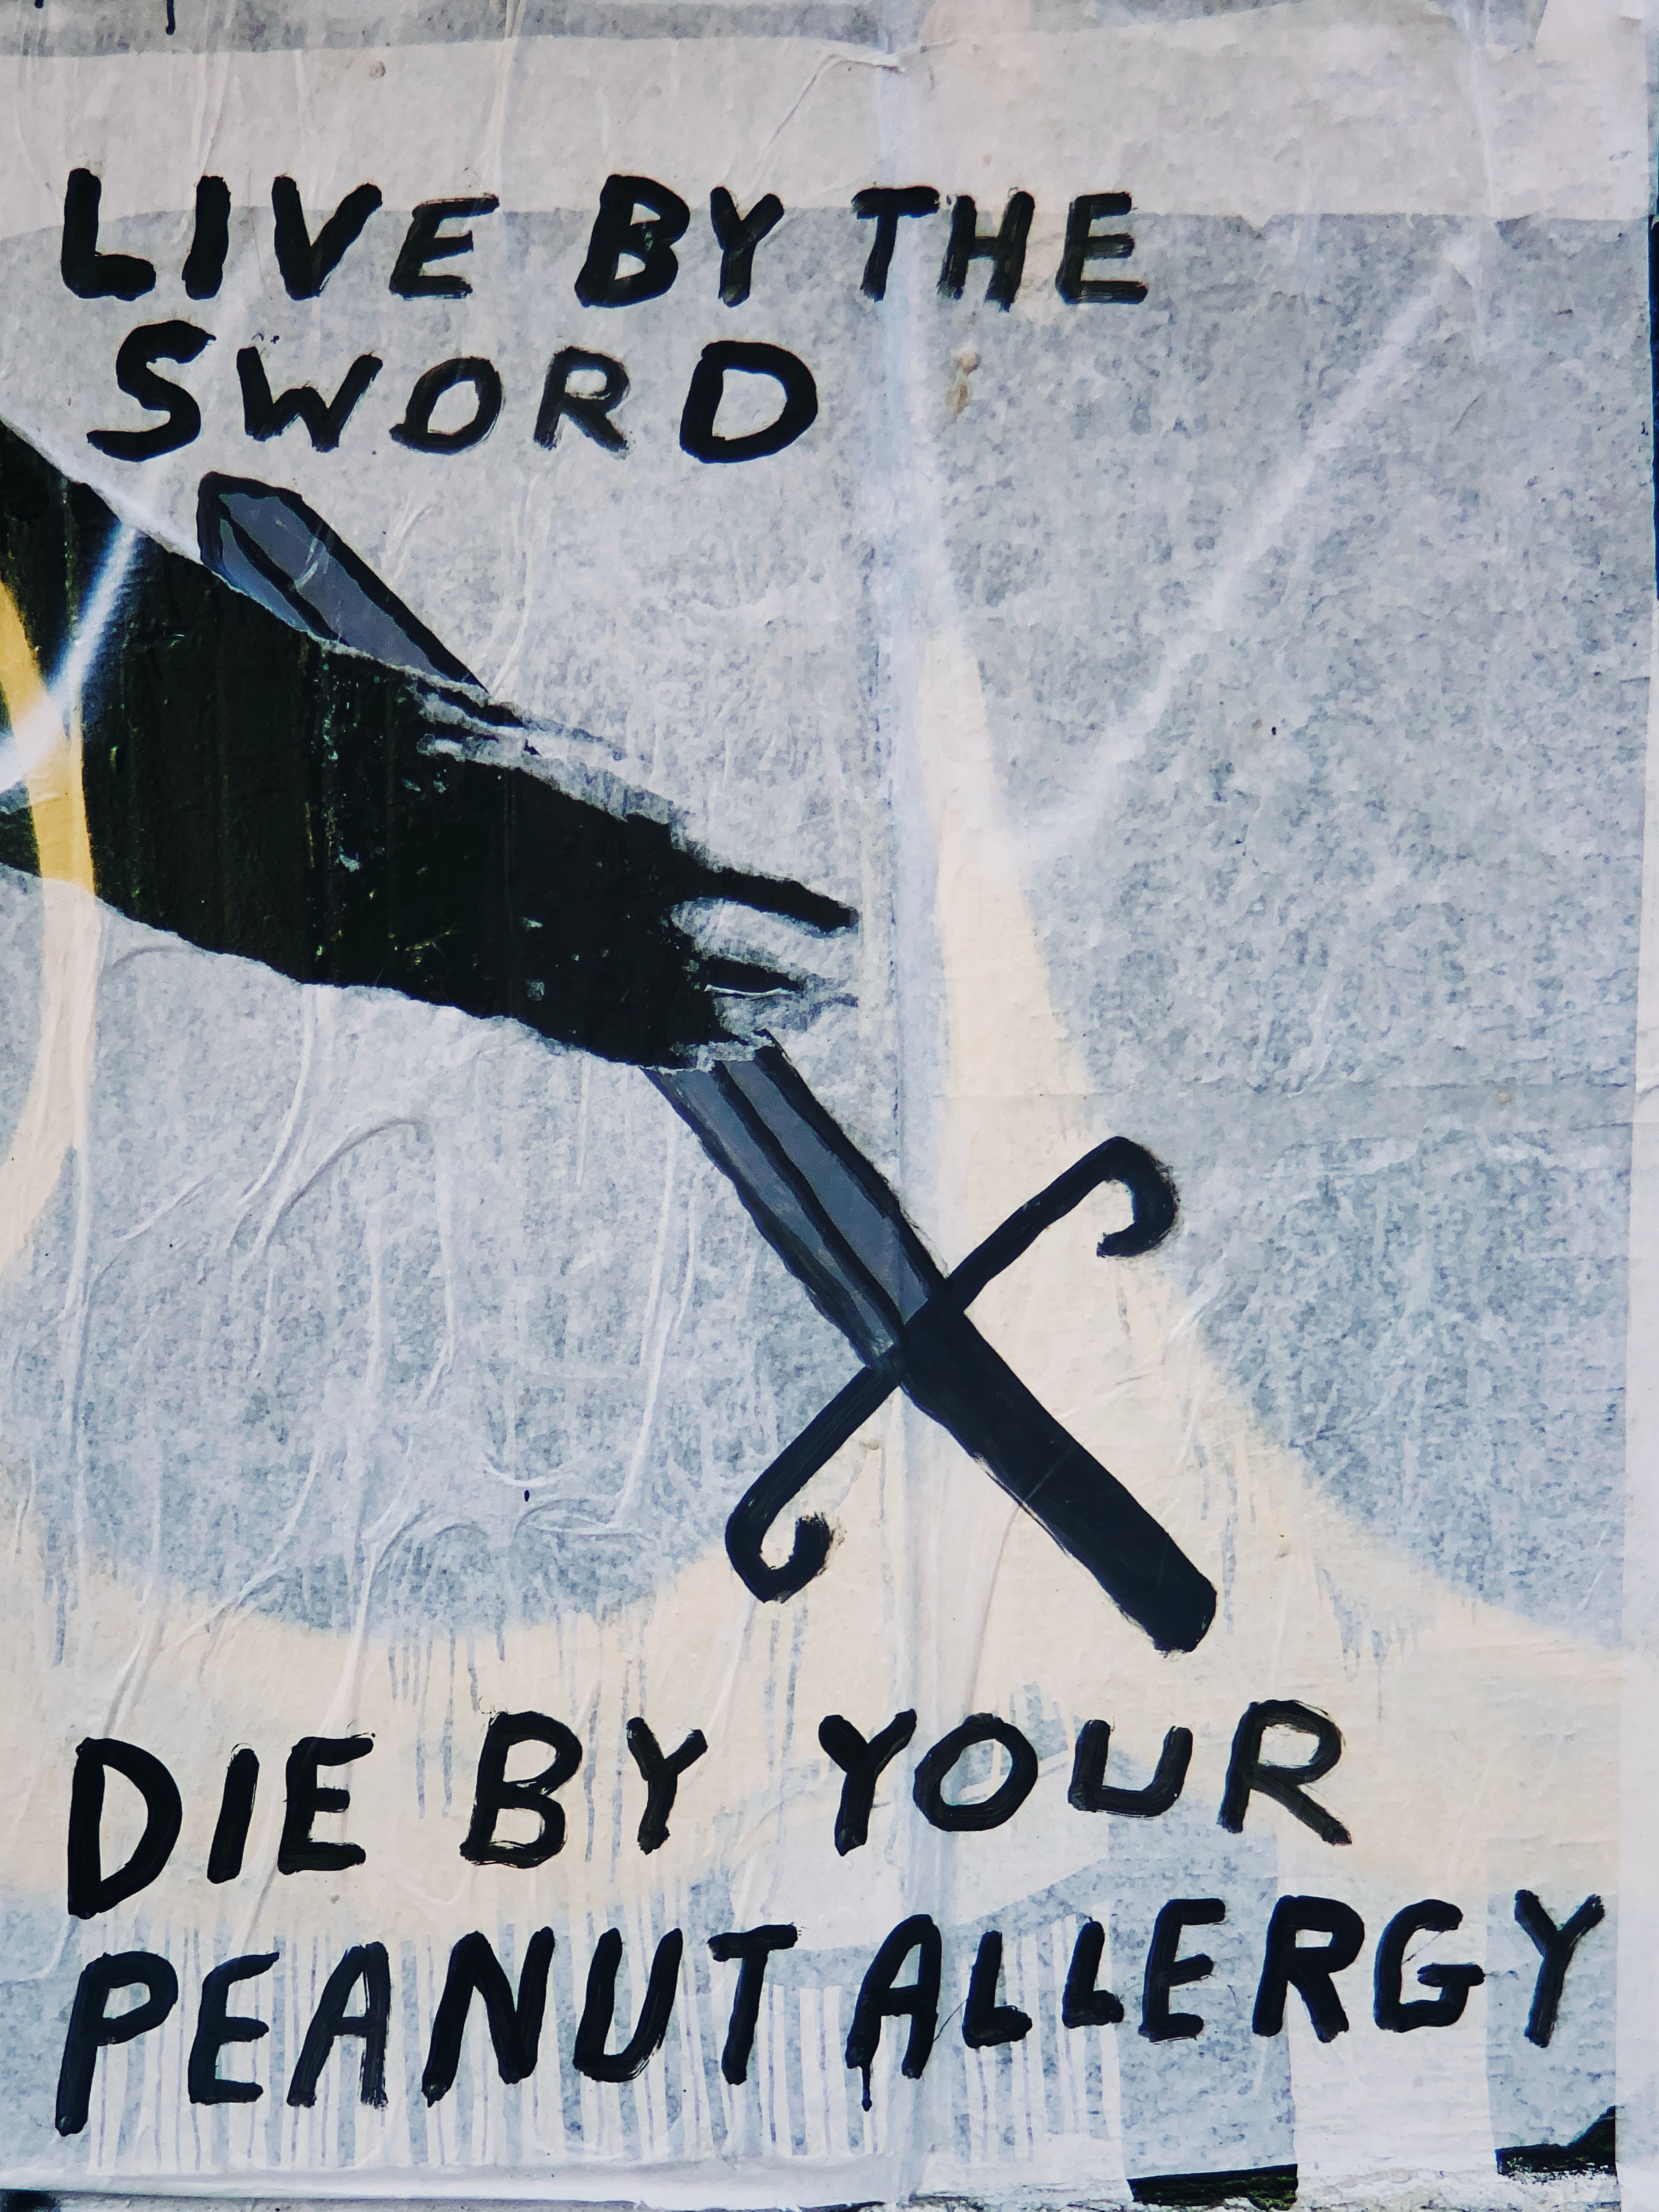 LIVE BY THE
SWORD
DIE BY YOUR
PEANUT ALLERGY